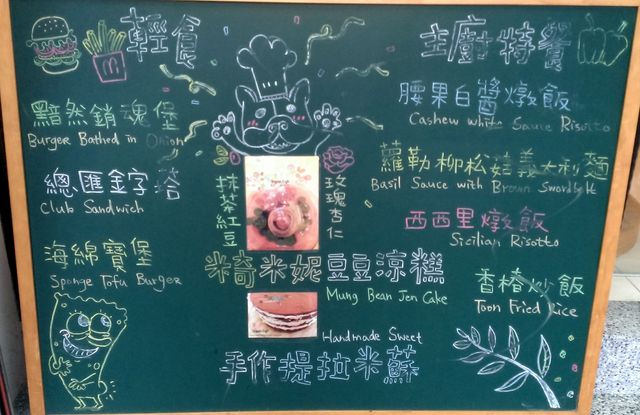 輕食
主廚特餐
黯然銷魂堡
Burger Bathed in Onion
總匯金字塔
Club Sandwich
海綿寶堡
Sponge Tofu Burger
腰果白醬燉飯
Cashew white Sauce Risotto
蘿勒柳松菇義大利麵
Basil Sauce with Brown
西西里燉飯
Sicilian Risotto
香椿炒飯
Toon Fried Rice
抹茶紅豆
玫瑰杏仁
米奇米妮豆豆涼糕
Mung Bean Jen Cake
Handmade Sweet
手作提拉米蘇